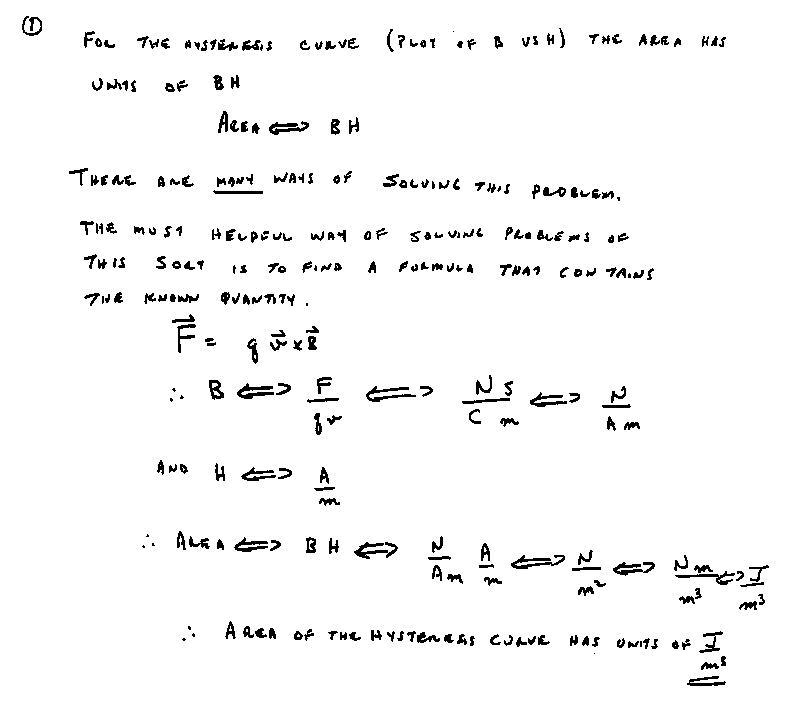 ① FOR THE HYSTERESIS CURVE (PLOT OF B VS H) THE AREA HAS
UNITS OF BH
AREA ⇔ BH
THERE ARE MANY WAYS OF SOLVING THIS PROBLEM.
THE MOST HELPFUL WAY OF SOLVING PROBLEMS OF
THIS SORT IS TO FIND A FORMULA THAT CONTAINS
THE KNOWN QUANTITY.
F⃗ = q v⃗ × B⃗
∴ B ⇔ F/qv ⇔ N s/C m ⇔ N/A m
AND H ⇔ A/m
∴ AREA ⇔ BH ⇔ N/Am A/m ⇔ N/m² ⇔ Nm/m³ ⇔ J/m³
∴ AREA OF THE HYSTERESIS CURVE HAS UNITS OF J/m³